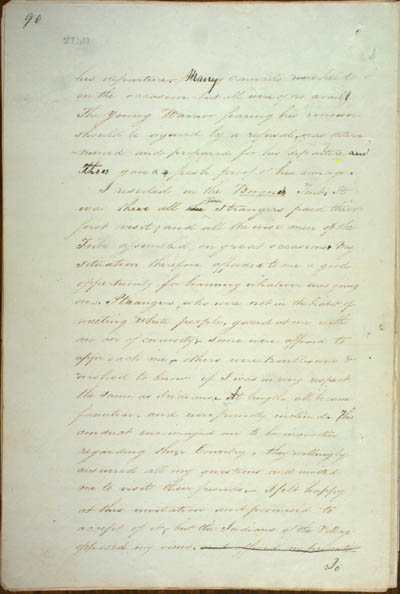 90
2150
his departure. Many councils were held
on the occasion but all were of no avail
The Young Warrior fearing his renown
should be injured by a refusal, was deter
-mined and prepared for his departure and
thus gave a fresh proof of his courage.
I resided in the Tent. It
was there all Strangers paid their
first visit, and all the wise men of the
Tribe assembled, on great occasions. My
situation therefore afforded to me a good
opportunity for learning whatever was going
on. Strangers, who were not in the habit of
meeting White people, gazed at me with
an air of curiosity, some were afraid to
approach me, others were troublesome &
wished to know if I was in every respect
the same as Indians. At length all became
familiar, and were friendly inclined. This
conduct encouraged me to be inquisitive
regarding their Country, they willingly
answered all my questions and invited
me to visit their friends. I felt happy
at this invitation and promised to
accept of it, but the Indians of the Village
opposed my views.
To